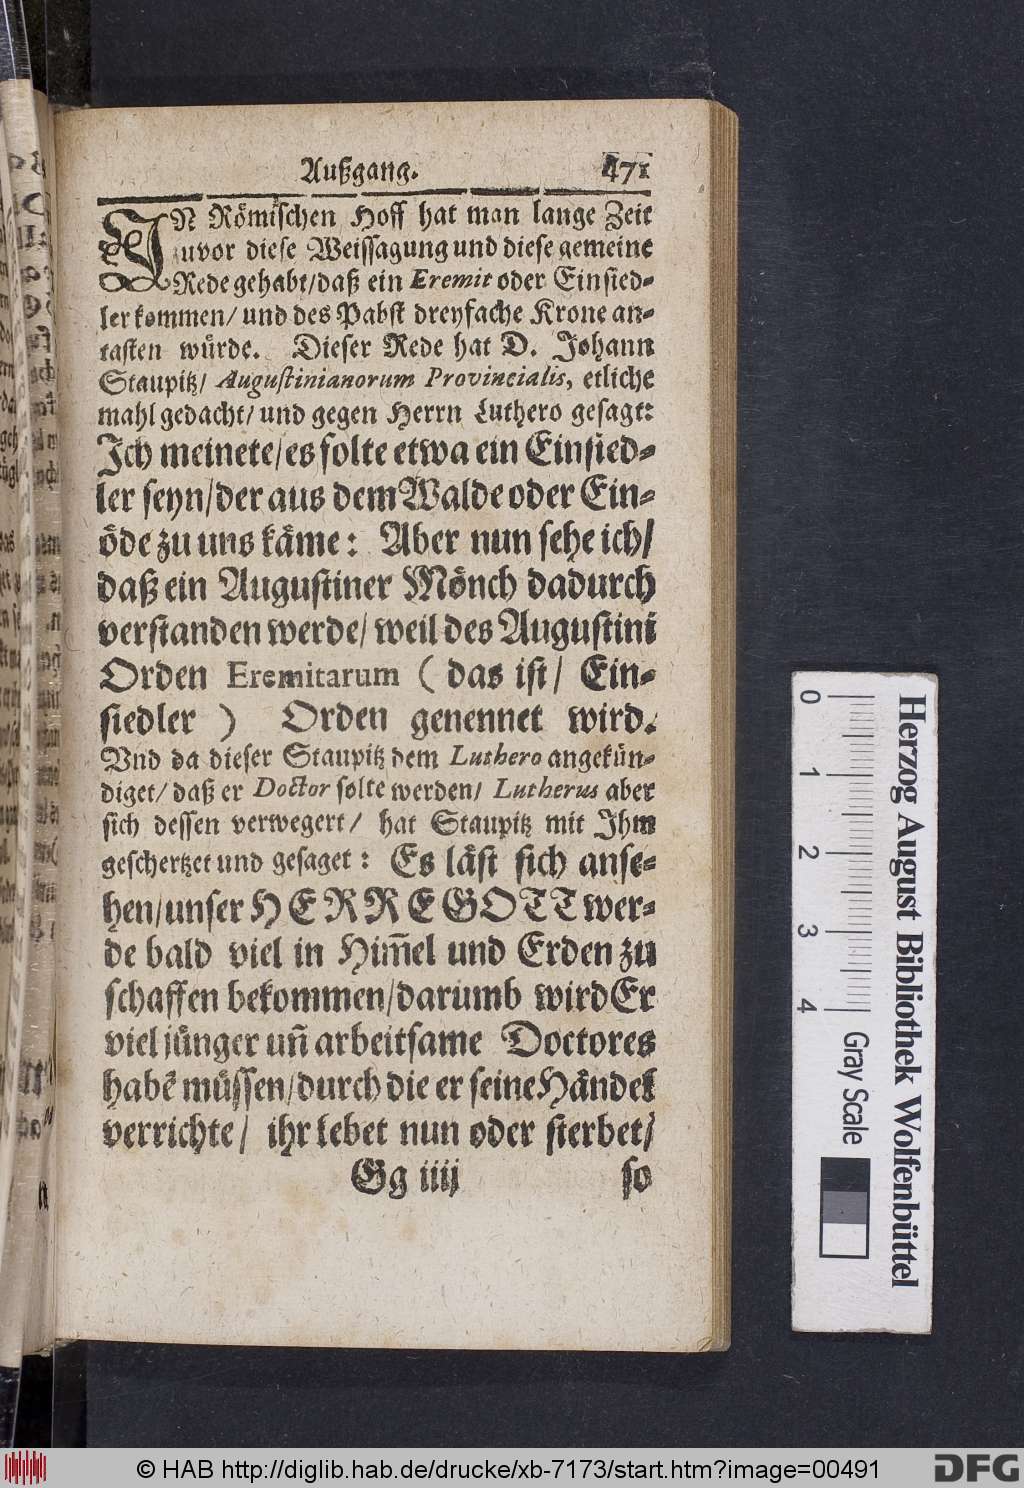 Außgang. 471
IN Römischen Hoff hat man lange Zeit
zuvor diese Weissagung und diese gemeine
Rede gehabt/daß ein Eremit oder Einsied-
ler kommen/ und des Pabst dreyfache Krone an-
tasten würde. Dieser Rede hat D. Johann
Staupitz/ Augustinianorum Provincialis, etliche
mahl gedacht/ und gegen Herrn Luthero gesagt:
Ich meinete/es solte etwa ein Einsied-
ler seyn/der aus dem Walde oder Ein-
öde zu uns käme: Aber nun sehe ich/
daß ein Augustiner Mönch dadurch
verstanden werde/ weil des Augustini
Orden Eremitarum ( das ist/ Ein-
siedler ) Orden genennet wird.
Vnd da dieser Staupitz dem Luthero angekün-
diget/ daß er Doctor solte werden/ Lutherus aber
sich dessen verwegert/ hat Staupitz mit Ihm
geschertzet und gesaget: Es läst sich anse-
hen/unser HERRE GOTT wer-
de bald viel in Him̄el und Erden zu
schaffen bekommen/darumb wird Er
viel jünger un̄ arbeitsame Doctores
habē müssen/durch die er seine Händel
verrichte/ ihr lebet nun oder sterbet/
Gg iiij so
Herzog August Bibliothek Wolfenbüttel
0 1 2 3 4 Gray Scale
© HAB http://diglib.hab.de/drucke/xb-7173/start.htm?image=00491
DFG